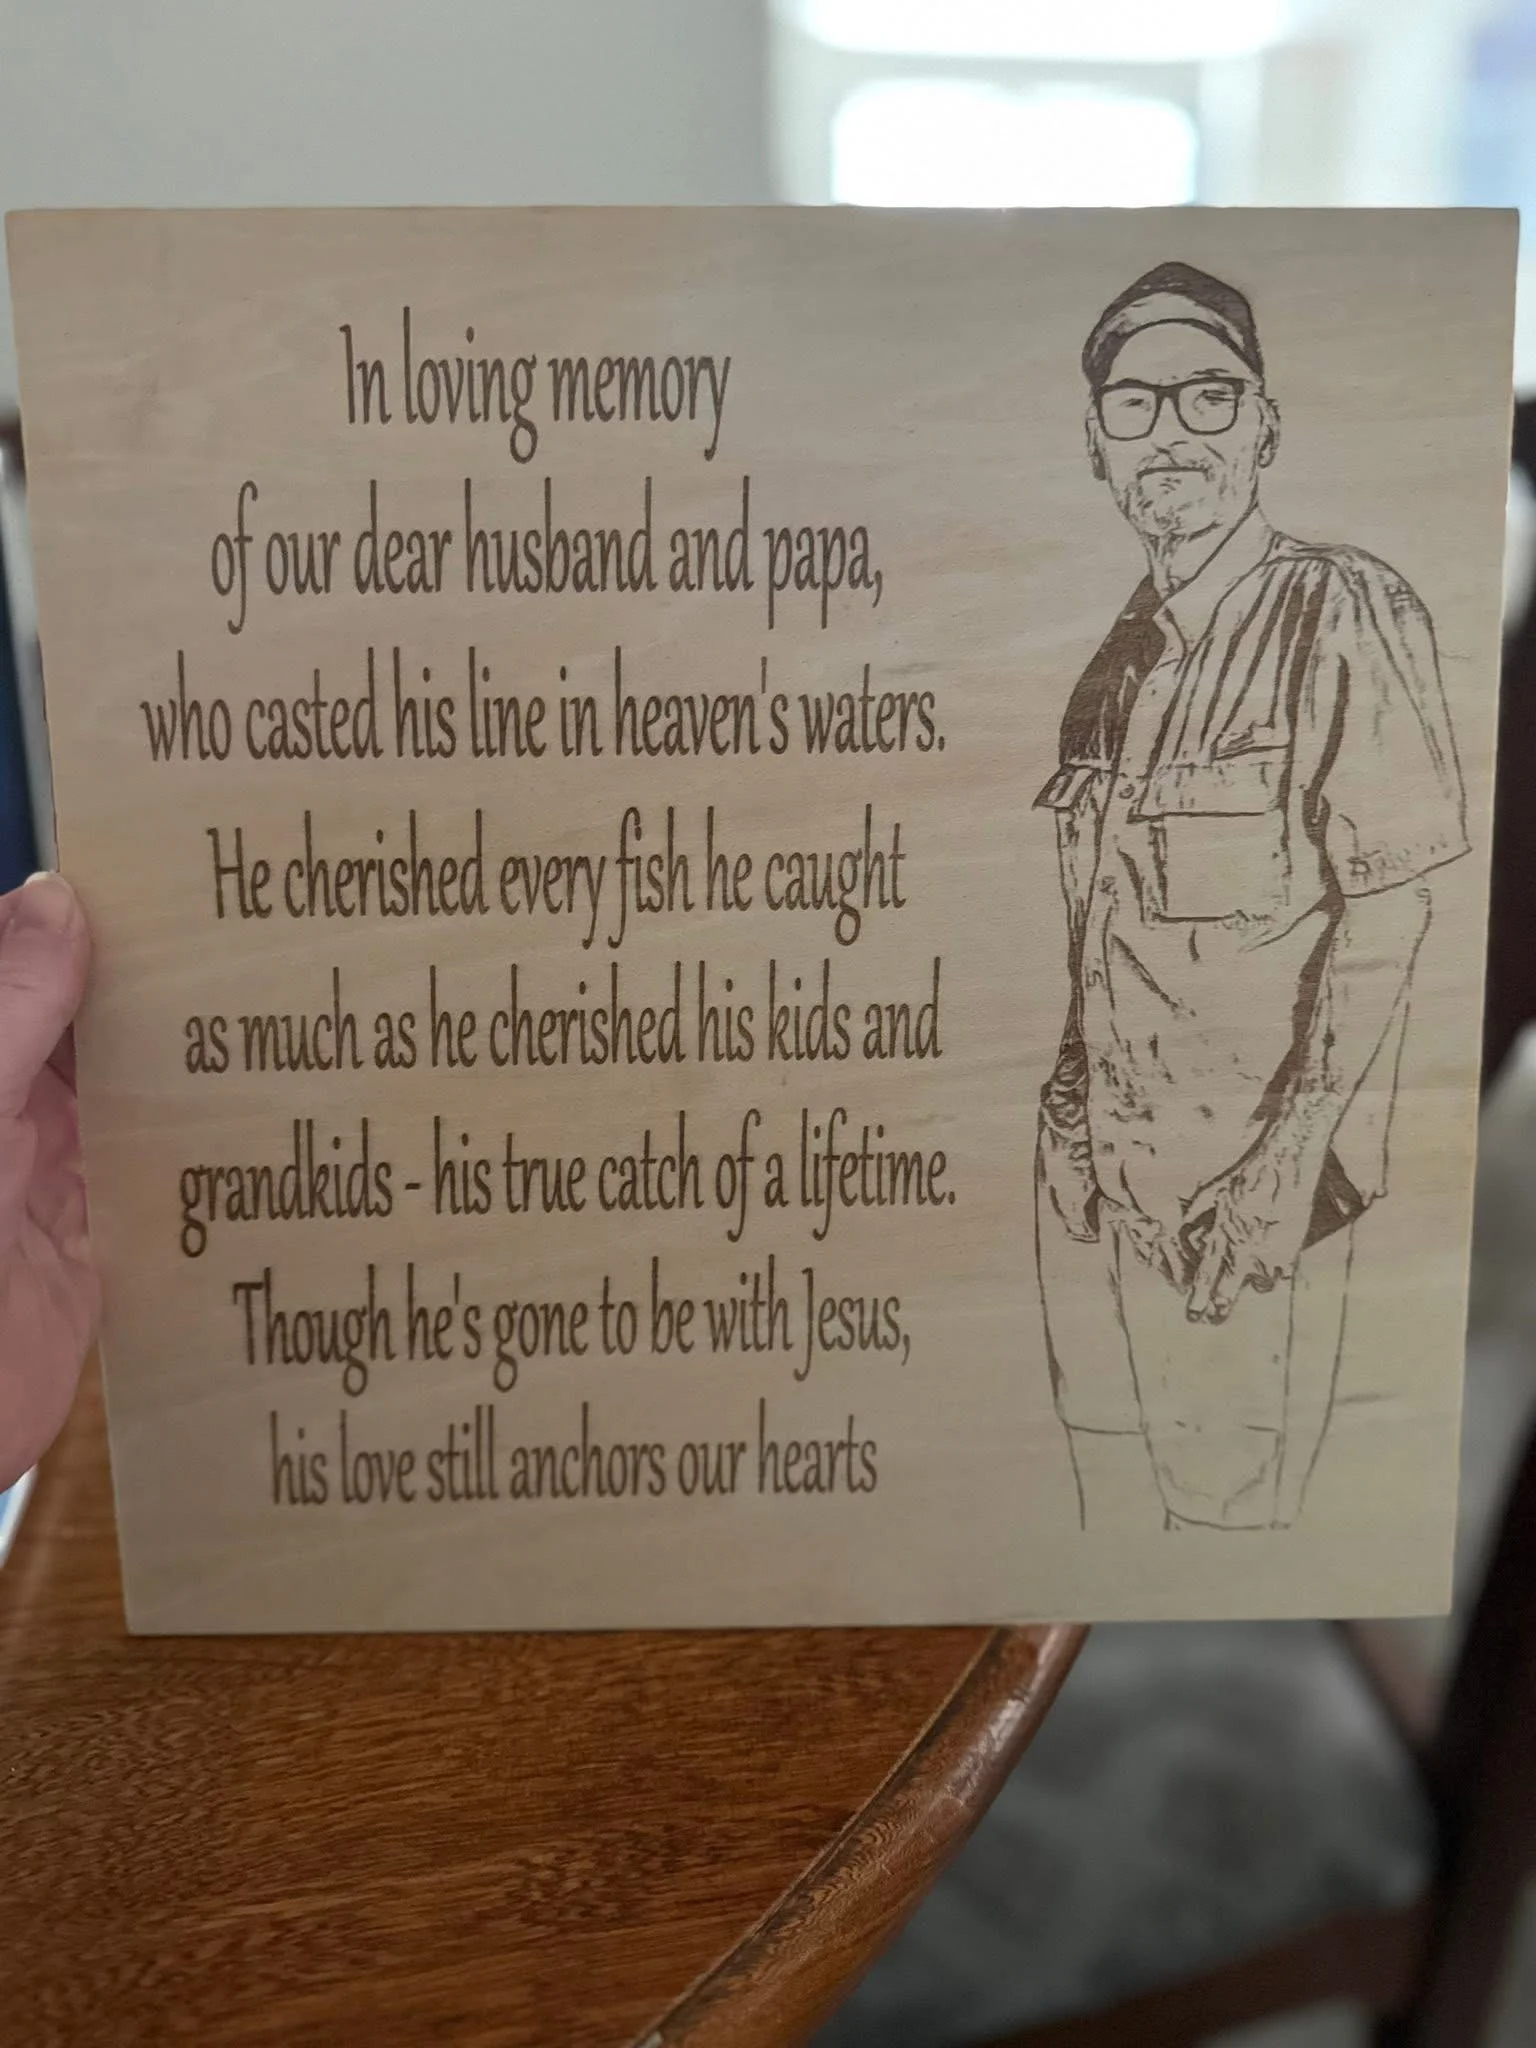 In loving memory
of our dear husband and papa,
who casted his line in heaven's waters.
He cherished every fish he caught
as much as he cherished his kids and
grandkids - his true catch of a lifetime.
Though he's gone to be with Jesus,
his love still anchors our hearts